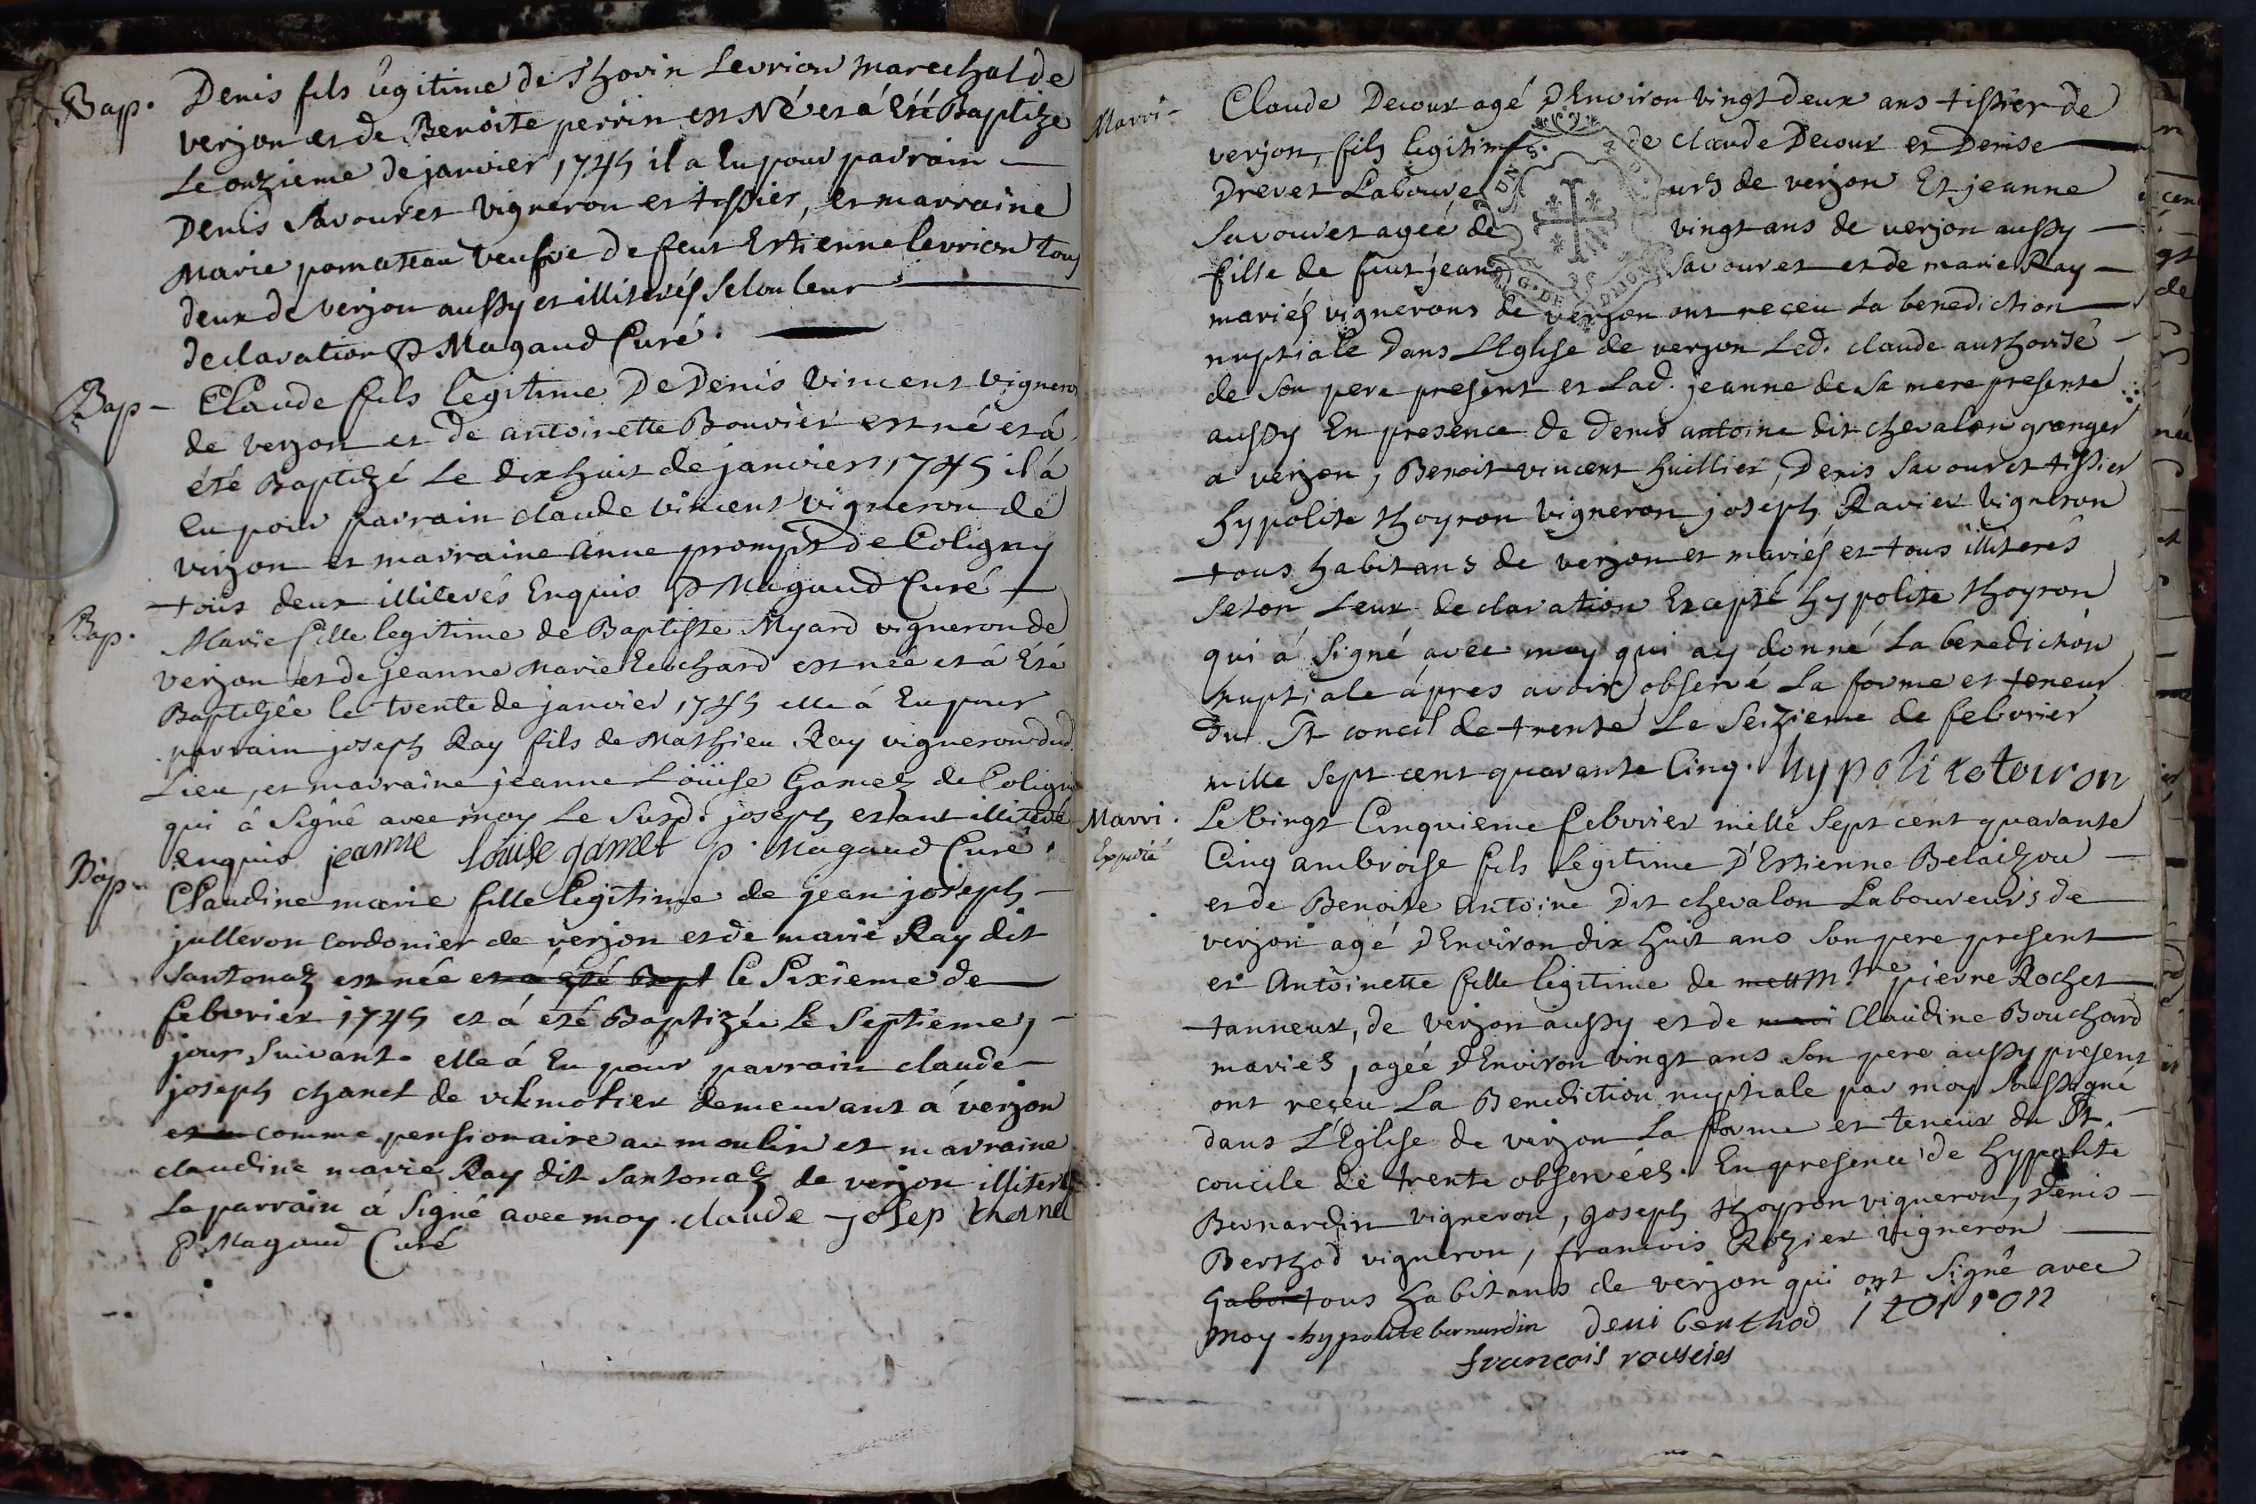 Bap. Denis fils légitime de Thovin Levrion marechal de
verjon et de Benoite perrin est Né et á Eté Baptize
Le onzieme de janvier 1745 il a Eu pour parrain
Denis Savouret vigneron et tissier, et marraine
Marie pomateau veufve de feut Estienne levrion tous
deux de verjon aussy et illiterés selon leur
declaration P Magaud Curé.
Bap - Claude fils legitime De Denis Vincent vigneron
de verjon et de antoinette Bouvier est né et á
été Baptizé Le dix huit de janvier 1745 il á
Eu pour parrain claude vincent vigneron de
verjon et marraine Anne prompt de Coligny
tous deux illiterés Enquis P Magaud Curé
Bap. Marie fille legitime de Baptiste Myard vigneron de
verjon et de jeanne Marie Bouchard est née et á Eté
Baptizée le trente de janvier 1745 elle á Eu pour
parrain joseph Ray fils de Mathieu Ray vigneron dud.
Lieu, et marraine jeanne Loüise Gamet de Coligny
qui á Signé avec moy Le Susd. joseph estant illiteré
enquis jeanne loüise gamet P. Magaud Curé.
Bap - Claudine marie fille legitime de jean joseph
julleron cordonier de verjon et de marie Ray dit
Santonaz est née et á eté Bapt le Sixieme de
febvrier 1745 et á eté Baptizée Le Septieme
jour Suivant. elle á Eu pour parrain claude
joseph chanel de vilmotier demeurant á verjon
et comme pensionaire au moulin et marraine
claudine marie Ray dit Santonaz de verjon illiteré
Le parrain á Signé avec moy. claude josep chanel
P Magaud Curé
Marri - Claude Decour agé D'Environ vingt deux ans tissier de
verjon, fils legitime de claude Decour et Denise
Drevet Laboureurs de verjon Et jeanne
Savouret ageé de vingt ans de verjon aussy
fille de feut jean Savouret et de marie Ray
mariés vignerons de verjon ont reçeu La benediction
nuptiale Dans L'Eglise de verjon Led. claude authorisé
de Son pere present et Lad. jeanne de Sa mere presente
aussy En presence de Denis antoine dit chevalon granger
a verjon, Benoit vincent huillier, Denis Savouret tissier
hypolite thoyron vigneron joseph Ravier vigneron
tous habitans de verjon et mariés et tous illiterés
Selon Leur declaration Excepté hypolite thoyron
qui á Signé avec moy qui ay donné La benediction
nuptiale áprés avoir observé La forme et teneur
Du St concil de trente Le Seizieme de febvrier
mille Sept cent quarante Cinq. hypoli te toiron
Marri. Le Vingt Cinquieme febvrier mille Sept cent quarante
Expedié Cinq ambroise fils Légitime D'Estienne Belaizou
et de Benoite Antoine Dit chevalon Laboureurs de
verjon agé D'Environ dix huit ans Son pere present
et Antoinette fille legitime de mett M.tre pierre Rochet
tanneur, de verjon aussy et de Claudine Bouchard
mariés, ageé D'Environ vingt ans Son pere aussy present
ont reçeu La Benediction nuptiale par moy Soussigné
dans L'Eglise de verjon La forme et teneur du St.
concile de trente observées. En presence de hypolite
Bernardin vigneron, joseph thoyron vigneron, Denis
Berthod vigneron, francois Rozier vigneron
tous habitans de verjon qui ont Signé avec
moy. hypolite bernardin deni berthod i toiron
francois rousies